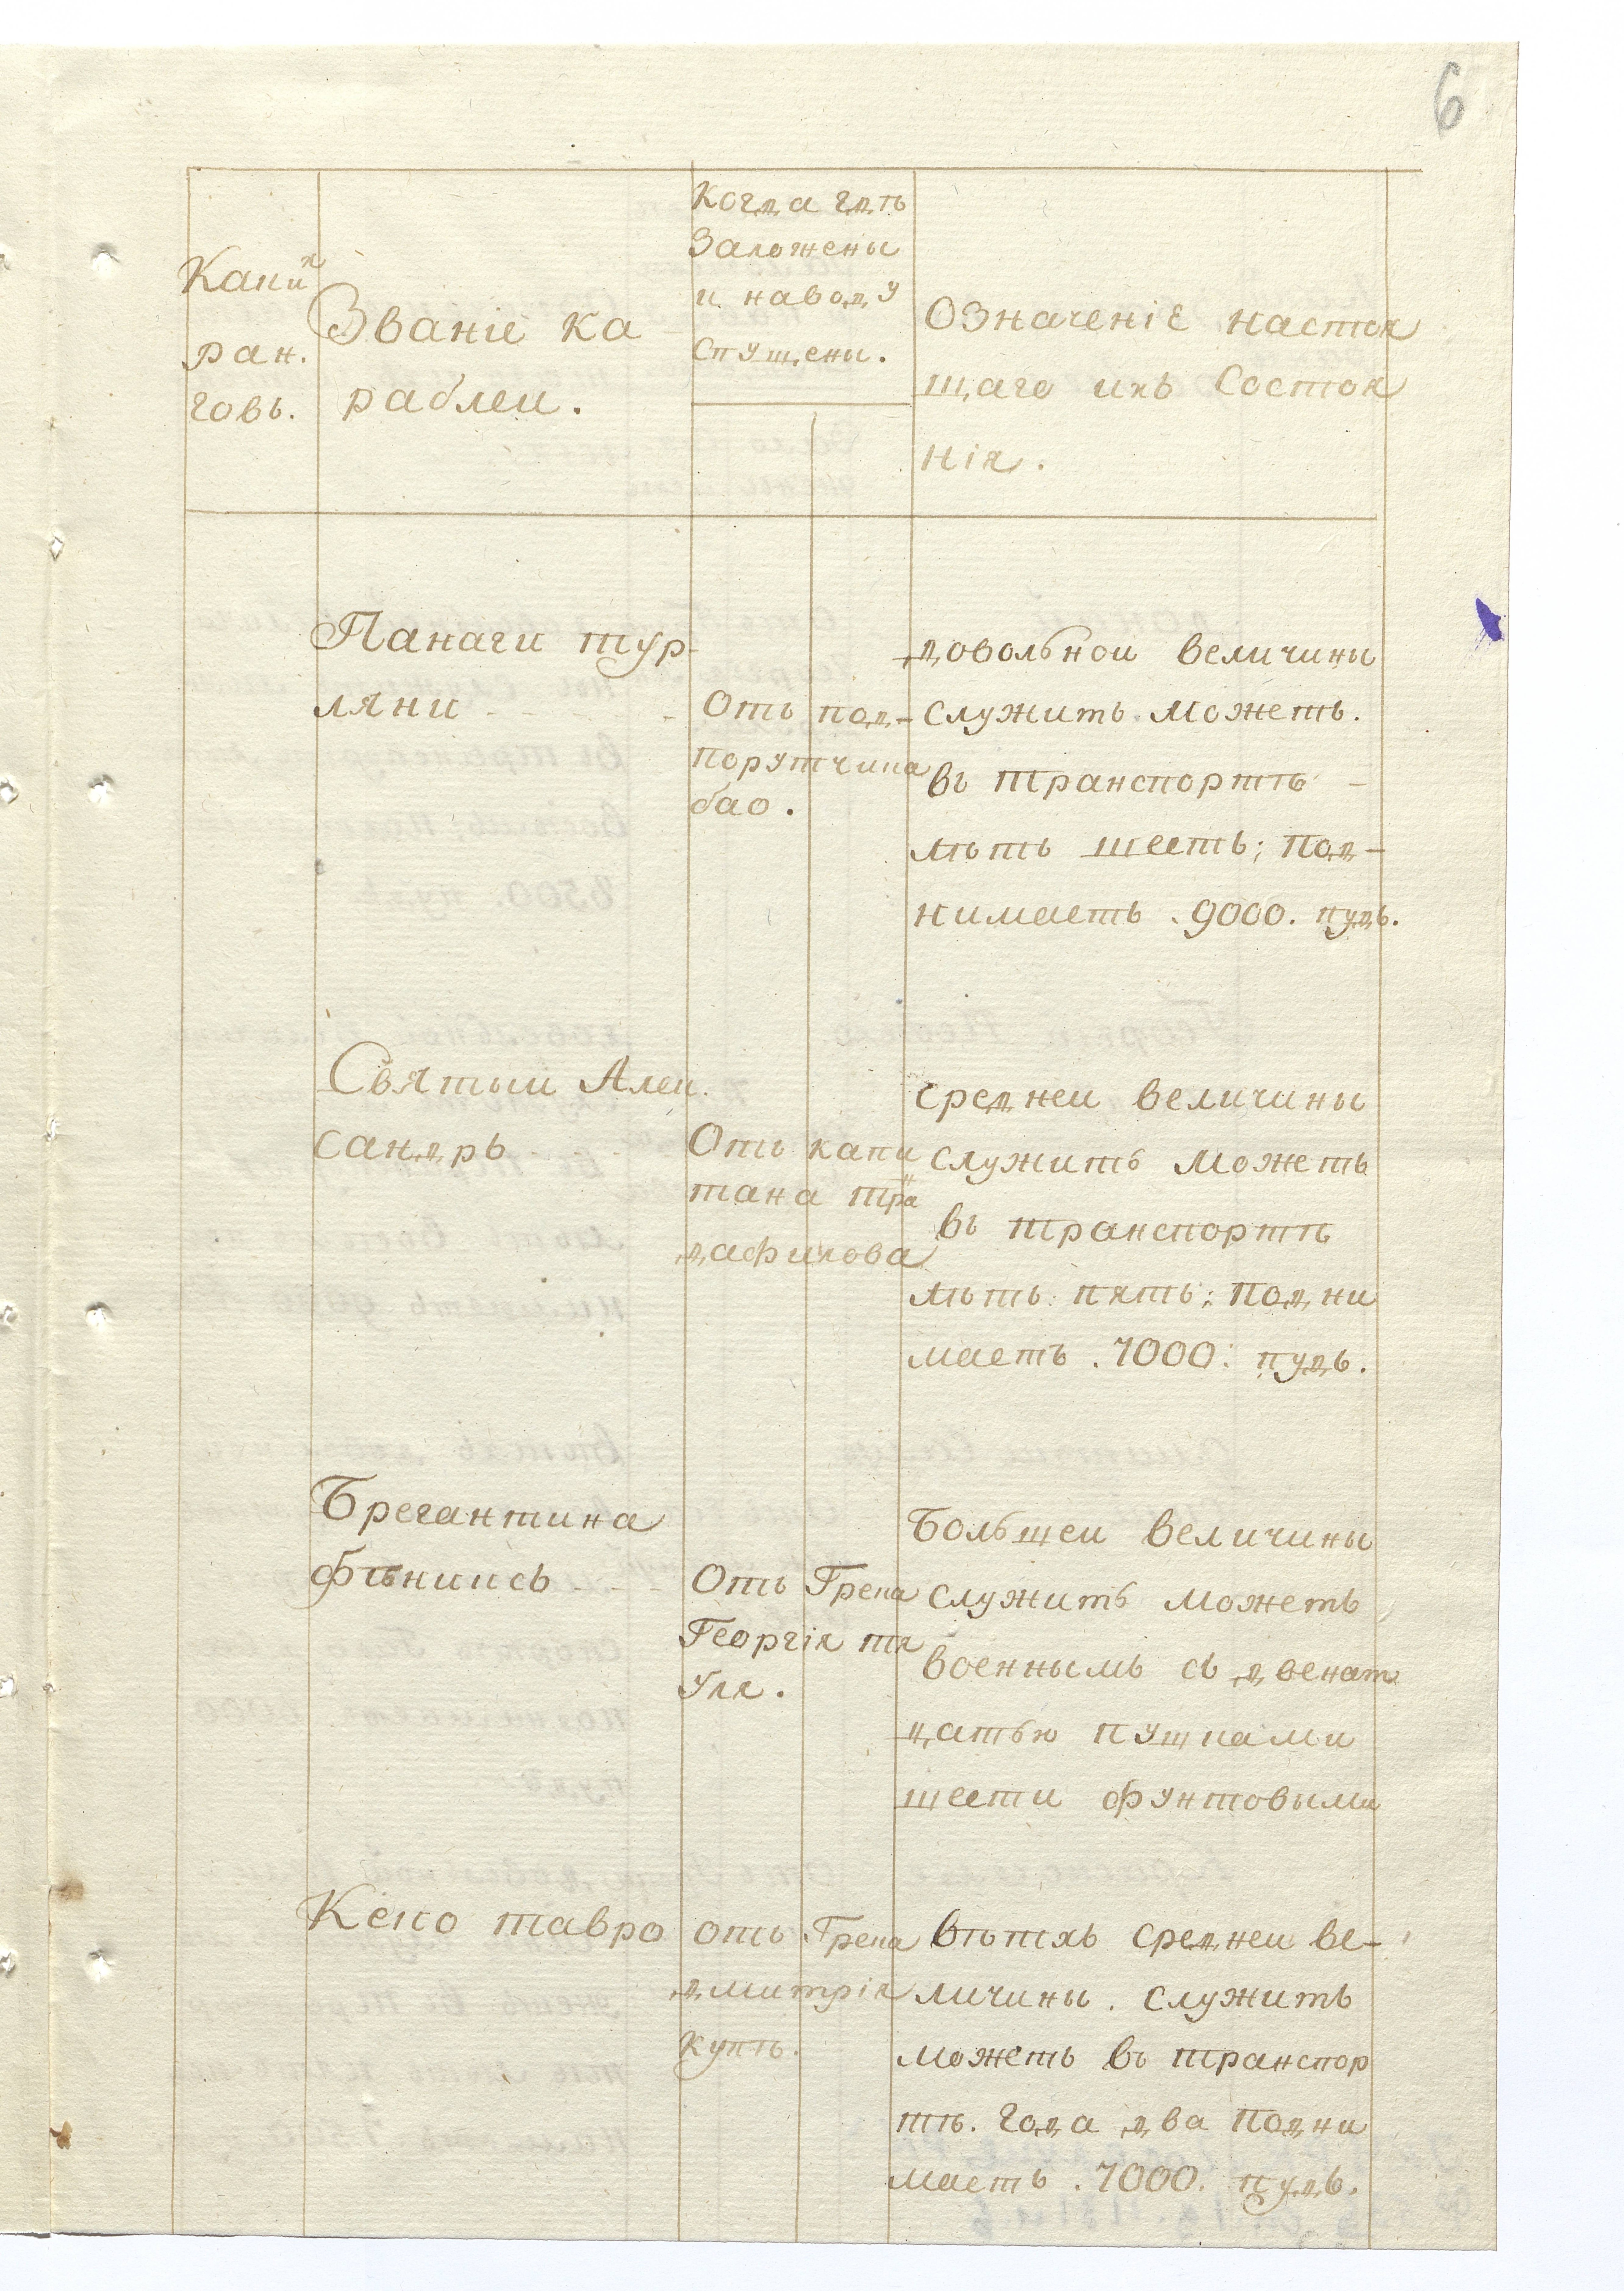 6
Каких
ран.
говъ.
Званіе ка
раблеи.
Когда гдѣ
Заложены
и наводу
Спущены.
Означеніе настоя
щаго ихъ Состоя
нія.
Панаги тур-
ляни - - -
Отъ под-
порутчика
бао.
довольнои величины
служить можетъ.
въ транспортѣ -
лѣтъ шесть; под-
нимаетъ . 9000. пудъ.
Святыи Алек.
сандръ - - -
Отъ капи
тана тра
дафилова
Среднеи величины
служить можетъ
въ транспортѣ
лѣтъ пять; подни
маетъ . 7000. пудъ.
Брегантина
фѣниксъ - - -
Отъ Грека
Георгія тя
уля.
Большеи величины
служить можетъ
военнымъ съ двенат
цатью пушками
шести фунтовыми
Ксно тавро
отъ Грека
дмитрія
купѣ.
Вѣтхъ среднеи ве-
личины. служить
можетъ въ транспор
тѣ. года два подни
маетъ . 7000. пудъ.